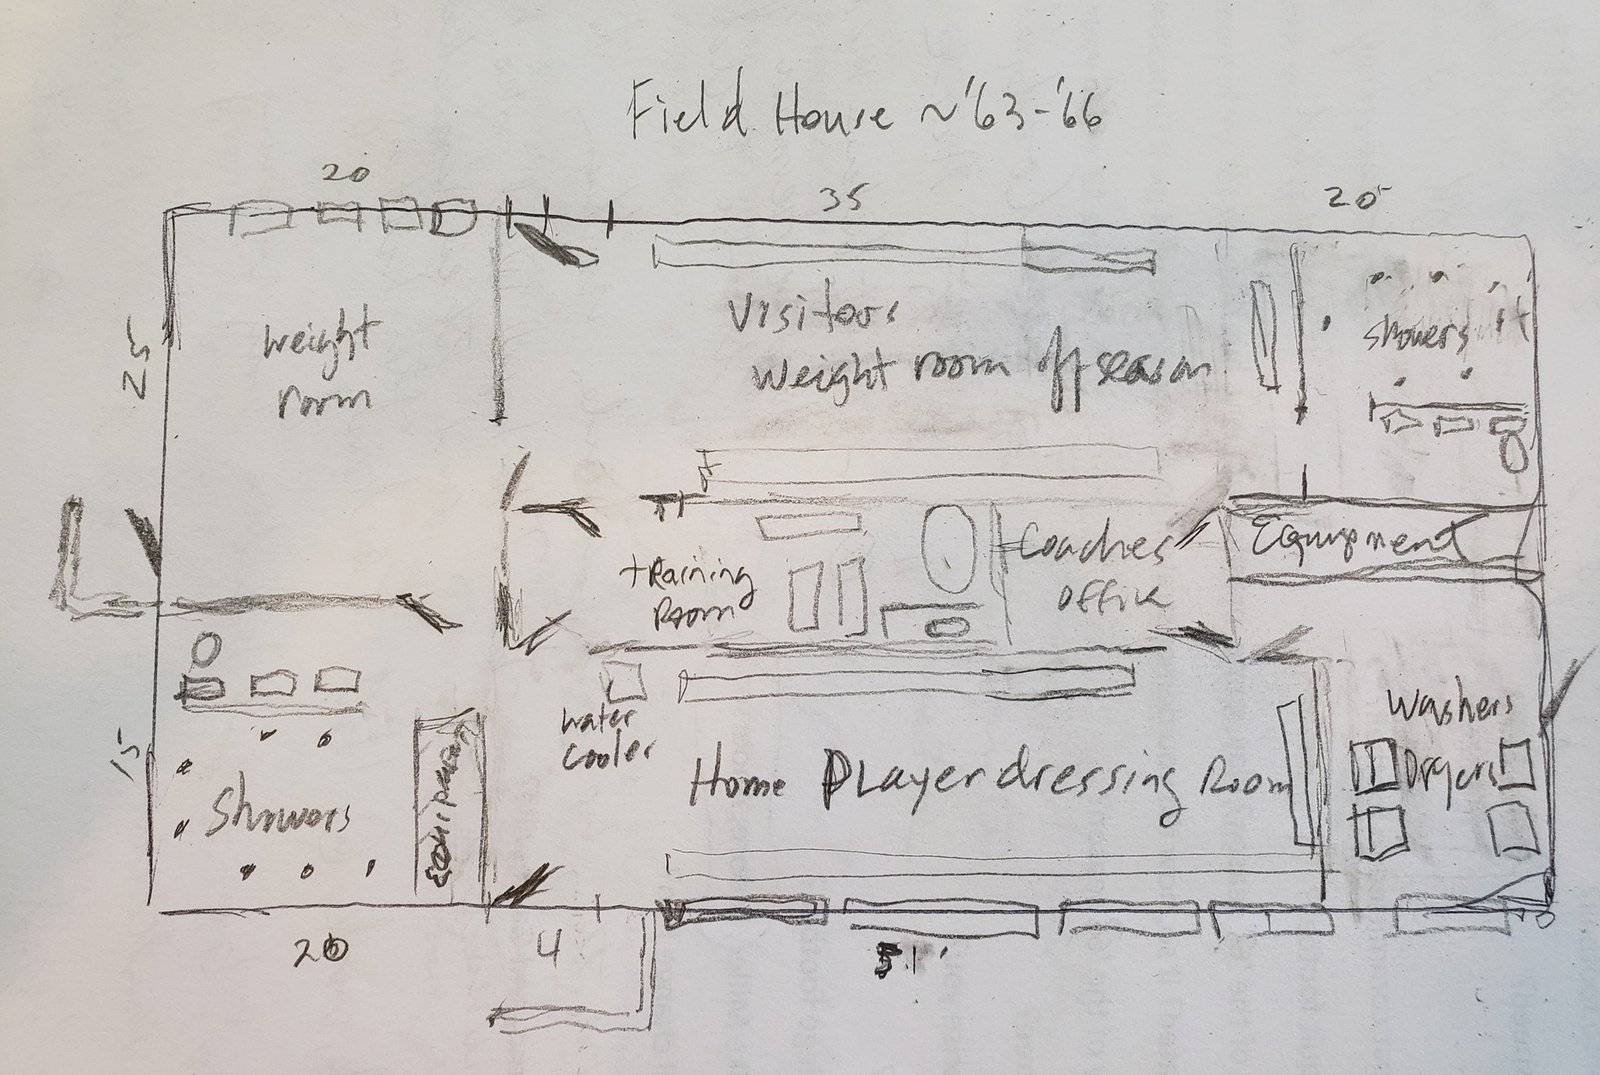 Field House ~'63-'66
20
35
20
25
weight
room
Visitors
Weight room off season
showers
training
Room
Coaches
office
Equipment
15
water
cooler
Showers
Equipment
Home Player dressing Room
Washers
Dryers
20
4
51'